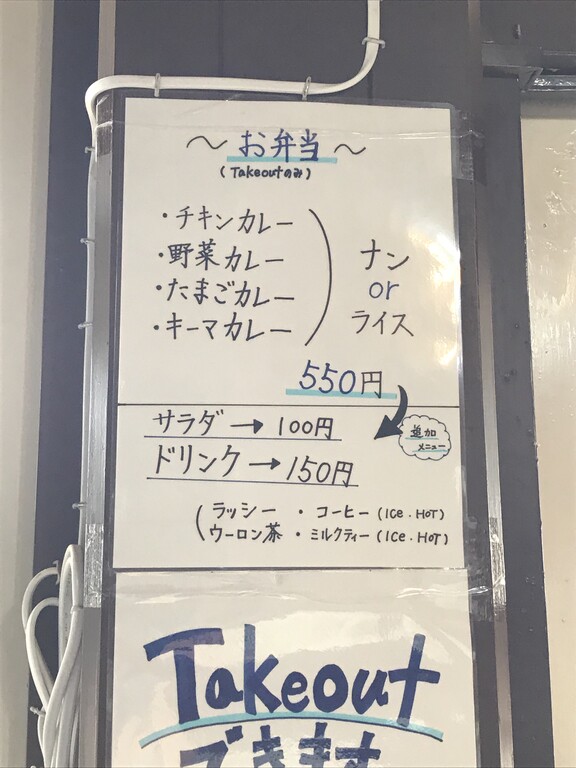 〜お弁当〜
(Takeoutのみ)
・チキンカレー
・野菜カレー
・たまごカレー
・キーマカレー
ナン
or
ライス
550円
追加
メニュー
サラダ→100円
ドリンク→150円
(ラッシー ・コーヒー(ICe・HOT)
ウーロン茶 ・ミルクティー(ICe・HOT)
Takeout
できます